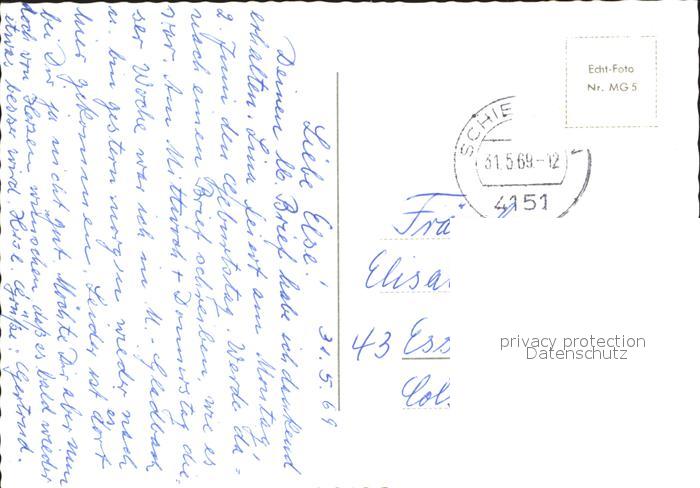 Liebe Else! 31.5.69
Deinen lb. Brief habe ich dankend
erhalten. Lina feiert am Montag,
2. Juni den Geburtstag. Werde da-
nach einen Brief schreiben, wie es
war. Am Mittwoch + Donnerstag die-
ser Woche war ich in M.-Gladbach
u. bin gestern morgen wieder nach
hier gekommen. Leider ist es dort
bei Dir ja nicht gut. Möchte Dir aber nun
doch von Herzen wünschen daß es bald wieder
etwas besser wird. Herzl. Grüße, Gertrud.
Echt-Foto
Nr. MG 5
SCHIE
31.5.69-12
4151
Frä
Elisa
43 Ess
privacy protection
Datenschutz